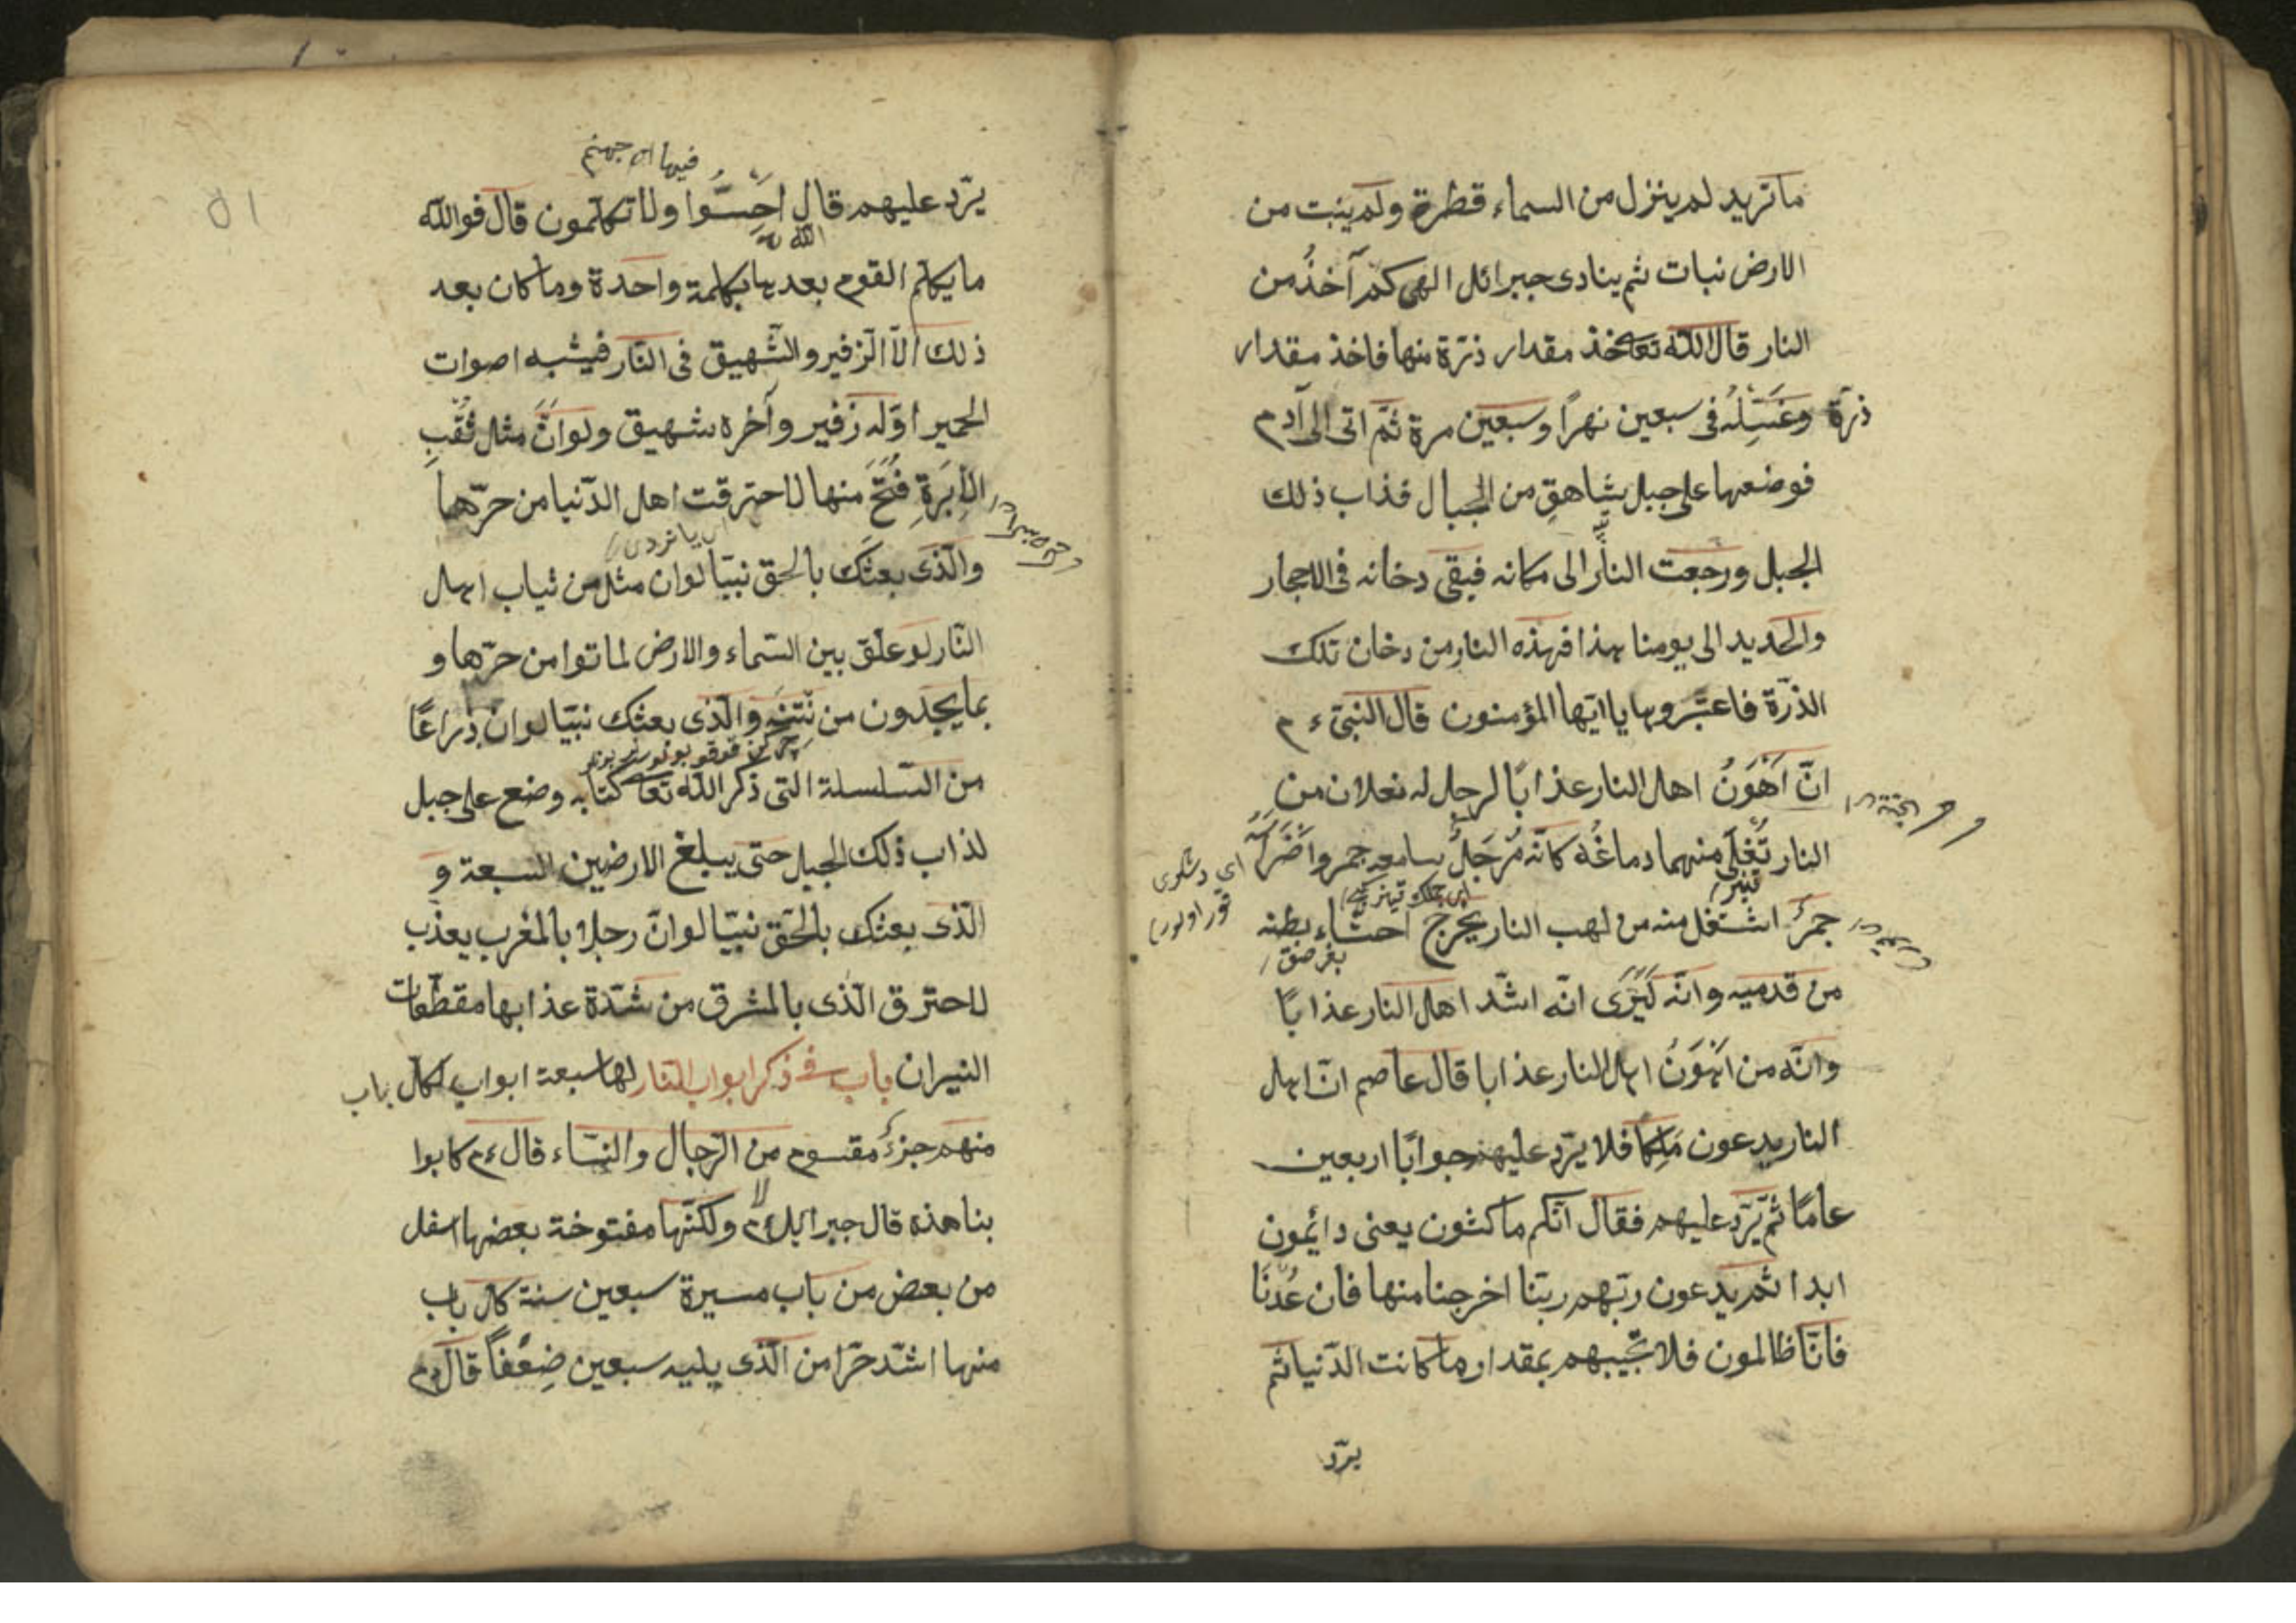 ما تريد لم ينزل من السماء قطرة ولم ينبت من
الارض نبات ثم ينادى جبرائل الهى كم آخذُ من
النار قال الله تعا خذ مقدار ذرّة منها فاخذ مقدار
ذرّة وغَسَلَهُ فى سبعين نهراً وسبعين مرة ثمّ اتى الى آدم
فوضعها على جبل شاهقٍ من الجبال فذاب ذلك
الجبل ورجعت النار الى مكانه فبقى دخانه فى الاحجار
والحديد الى يومنا هذا فهذه النار من دخان تلك
الذرّة فاعتبروها يا ايّها المؤمنون قال النبىّ ء م
انّ اَهْوَنُ اهل النار عذابًا لرجل له نعلان من
النار تُغْلَى منهما دماغُه كانّه مُرْجَلٌ سامعه جمر واضراسه
جمرٌ اشتغل منه من لهب النار يخرج احشاء بطنه
من قدميه وانّه لَيَرَى انّه اشدّ اهل النار عذابًا
وانّه من اَهْوَنُ اهل النار عذابا قال عاصم انّ اهل
النار يدعون مَلِكًا فلا يرّد عليهم جوابًا اربعين
عامًا ثم يَرّد عليهم فقال انّكم ماكثون يعنى دائمون
ابدا ثم يدعون ربّهم ربّنا اخرجنا منها فان عُدْنَا
فانّا ظالمون فلا يجيبهم بمقدار ما كانت الدّنيا ثم
يرّد
فيها اى جهنم
يرّد عليهم قال اخسَئُوا ولا تكلّمون قال فوالله
ما يكلم القوم بعدها بكلمة واحدة وما كان بعد
ذلك الاّ الزّفير والشّهيق فى النّار فيشبه اصوات
الحمير اوّله زفير وآخره شهيق ولو انَّ مثل ثُقْبِ
الاِبَرَةِ فُتِحَ منها لاحترقت اهل الدّنيا من حرّها
والّذى بعثَك بالحق نبيّا لو ان مثل من ثياب اهل
النّار لو علّق بين السّماء والارض لماتوا من حرّها و
بما يجدون من نَتْنِهِ والّذى بعثك نبيّا لو انّ ذراعًا
من السّلسلة التى ذكر الله تعا كتابه وضع على جبل
لذاب ذلك الجبل حتى يبلغ الارضين السبعة و
الّذى بعثك بالحقّ نبيّا لو انّ رجلا بالمغرب يعذّب
لاحترق الّذى بالمشرق من شدّة عذابها مقطّعات
النيران باب فى ذكر ابواب النّار لها سبعة ابواب لكل باب
منهم جزءٌ مقسوم من الرّجال والنّساء قال ء م كابوا
بنا هذه قال جبرائل ء م لا ولكنّها مفتوحة بعضها اسفل
من بعض من باب مسيرة سبعين سنة كل باب
منها اشدّ حرّا من الّذى يليه سبعين ضِعْفاً قال ء م